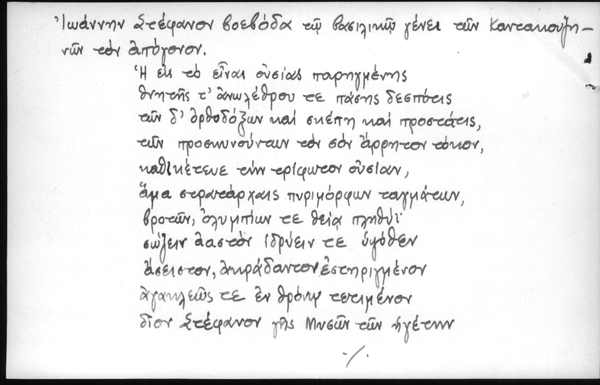 Ἰωάννην Στέφανον βοεβόδα τῷ βασιλικῷ γένει τῶν Καντακουζη-
νῶν τὸν ἀπόγονον.
Ἡ εἰς τὸ εἶναι οὐσίας παρηγμένης
θνητῆς τ' ἀνωλέθρου τε πάσης δεσπότις
τῶν δ' ὀρθοδόξων καὶ σκέπη καὶ προστάτις,
τῶν προσκυνούντων τὸν σὸν ἄρρητον τόκον,
καθικέτευε τὴν τρίφωτον οὐσίαν,
ἅμα στρατάρχαις πυριμόρφων ταγμάτων,
βροτῶν, ὀλυμπίων τε θείᾳ πληθύϊ
σώζειν λαστὸν ἱδρύειν τε ὑψόθεν
ἄσειστον, ἀκράδαντον ἐστηριγμένον
ἀγακλεῶς τε ἐν θρόνῳ τετιμένον
δῖον Στέφανον γῆς Μυσῶν τῶν ἡγέτην
./.